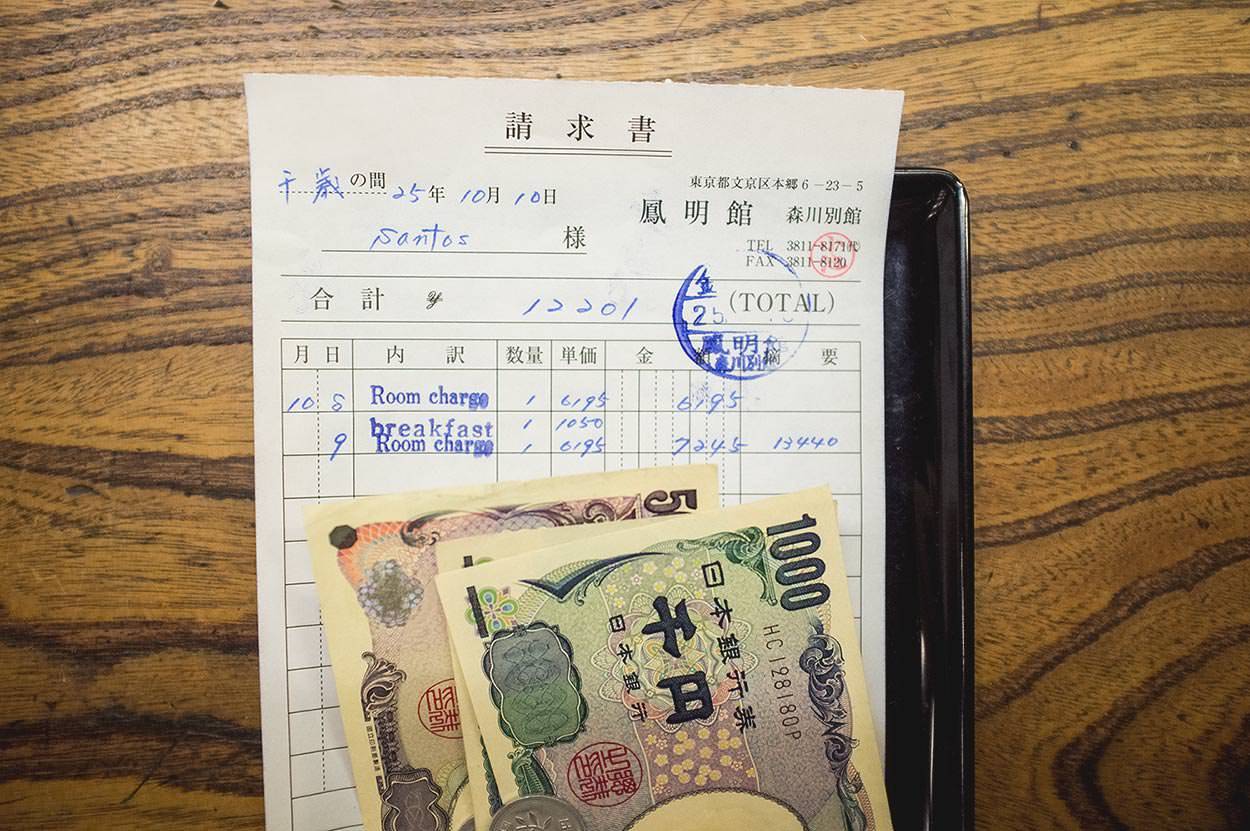 請求書
千歳の間 25年 10月 10日
東京都文京区本郷6-23-5
鳳明館 森川別館
Santos 様
TEL 3811-8171㈹
FAX 3811-8120
合計 ¥ 12201 (TOTAL)
金
25
鳳明館
森川別館
月 日 内訳 数量 単価 金額 摘要
10 8 Room charge 1 6195 6195
breakfast 1 1050
9 Room charge 1 6195 7245 13440
5
1000
日本銀行券
千円
日本銀行
HC128180P